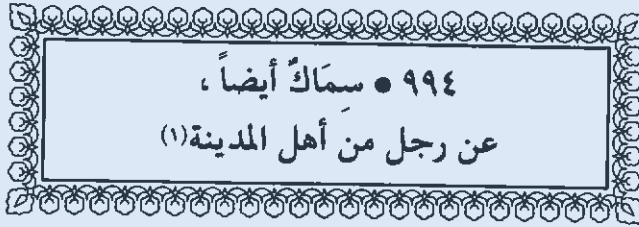 ٩٩٤ ● سِمَاكٌ أيضاً ،
عن رجل من أهل المدينة(١)